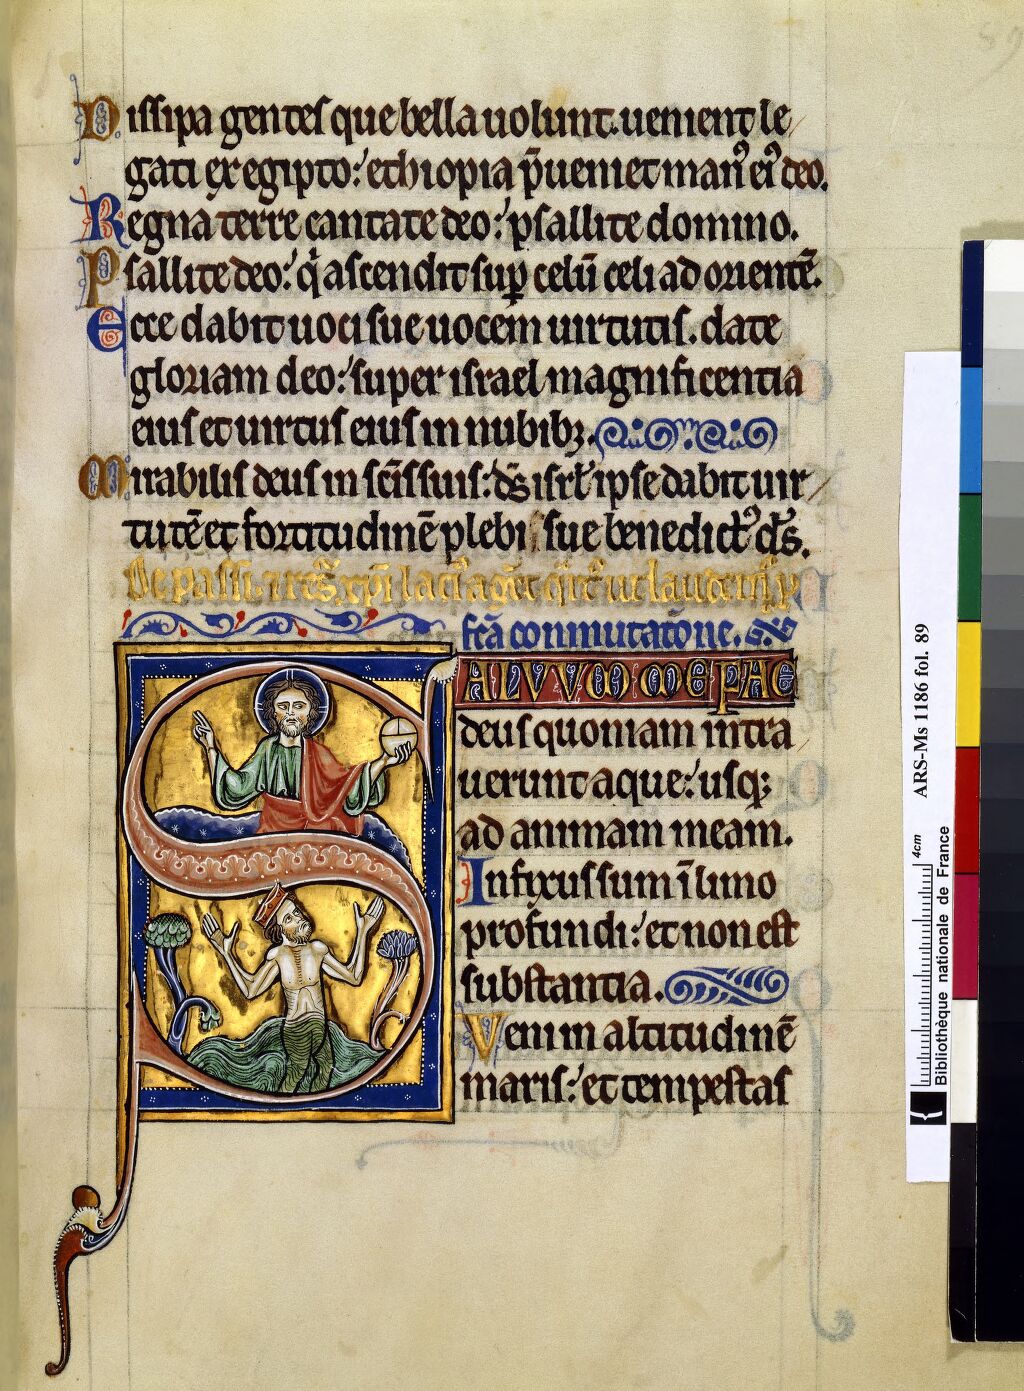 Dissipa gentes que bella uolunt. uenient le
gati ex egipto: ethiopia p̄ueniet man᷒ ei᷒ deo.
Regna terre cantate deo: psallite domino.
Psallite deo: q̄ ascendit sup̱ celū celi ad orientē.
Ecce dabit uoci sue uocem uirtutis. date
gloriam deo: super israel magnificentia
eius et uirtus eius in nubibꝫ.
Mirabilis deus in sc̄is suis: d̄s isrł ipse dabit uir
tutē et fortitudinē plebi sue benedict᷒ d̄s.
De passi
fc̄a conmutatōne.
SALVVM ME FAC
deus quoniam intra
uerunt aque: usqꝫ
ad animam meam.
Infixus sum ī limo
profundi: et non est
substantia.
Veni in altitudinē
maris: et tempestas
ARS-Ms 1186 fol. 89
4cm
Bibliothèque nationale de France